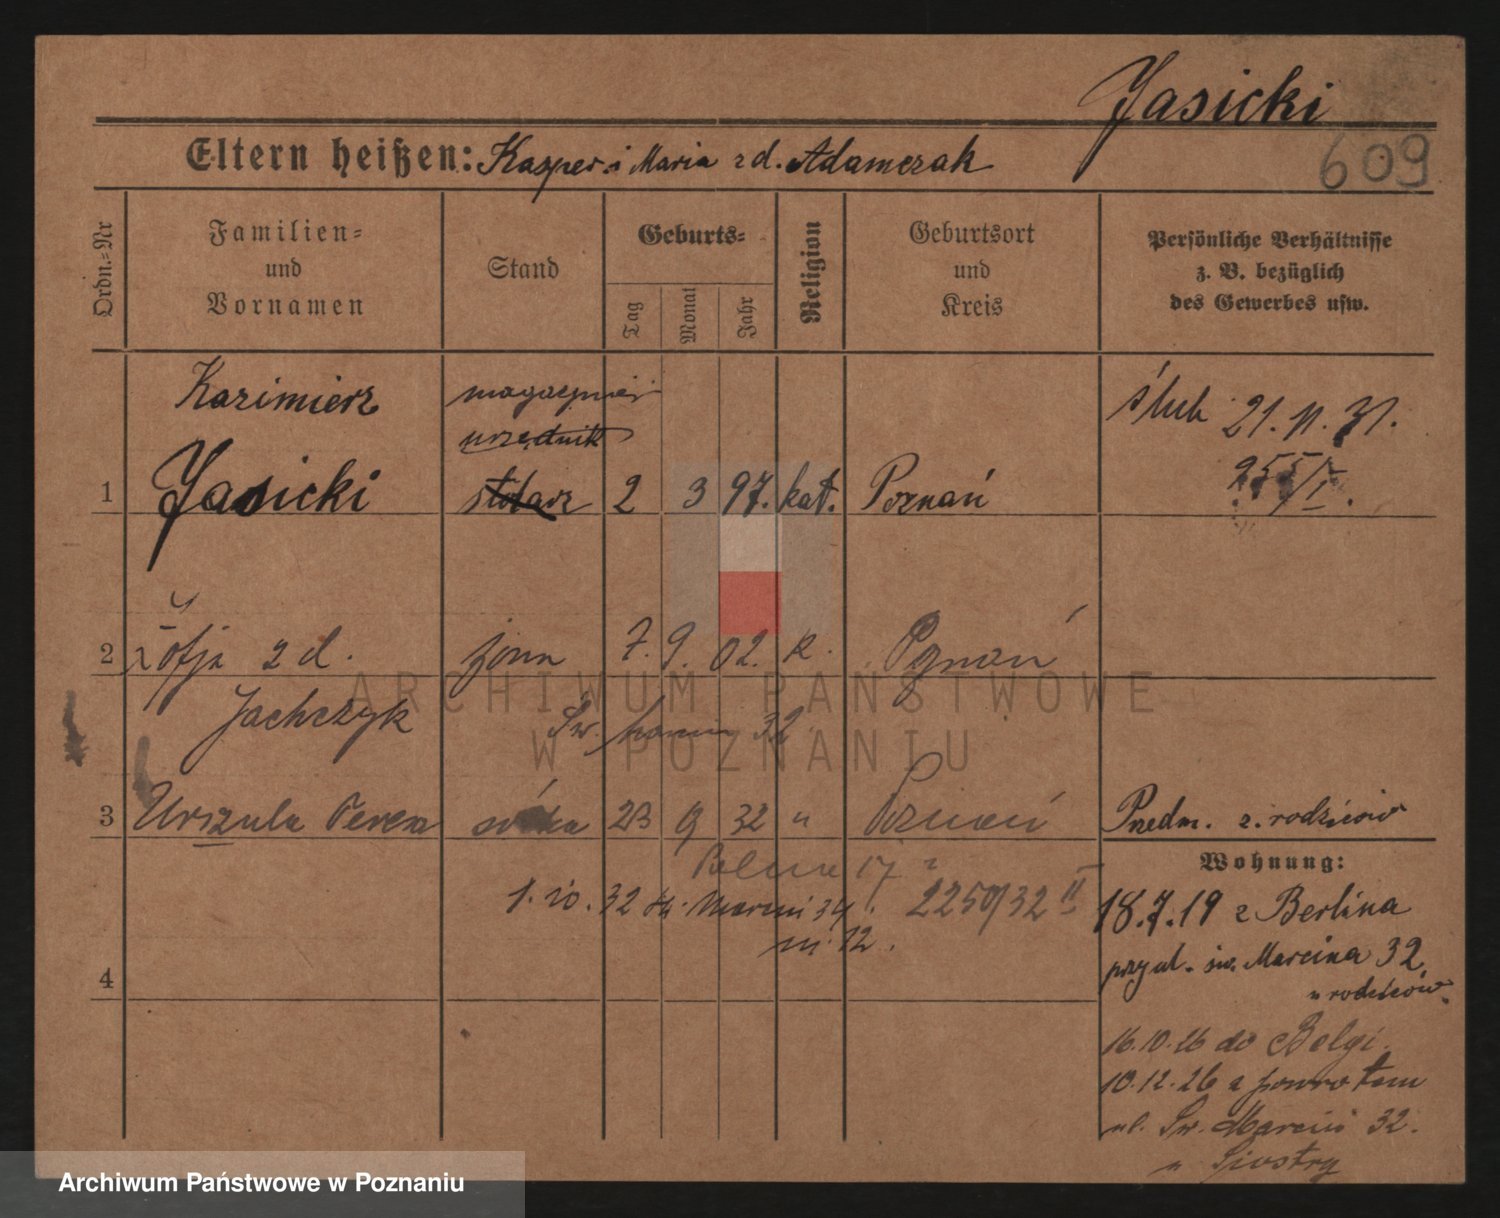 Jasicki
609
Eltern heißen: Kasper i Maria z d. Adamczak
Ordn.-Nr
Familien-
und
Vornamen
Stand
Geburts-
Tag
Monat
Jahr
Religion
Geburtsort
und
Kreis
Persönliche Verhältnisse
z. B. bezüglich
des Gewerbes usw.
Kazimierz
magazynier
urzędnik
ślub 21. 11. 31.
1 Jasicki stolarz 2 3 97. kat. Poznań
2 Zofja z d. żona 7. 9. 02. k. Poznań
Jachczyk
Św. Marcin 32
ARCHIWUM PAŃSTWOWE
W POZNANIU
3 Urszula Teresa córka 23 9 32 " Poznań
Przedm. z. rodziców
Wohnung:
1. 10. 32 Św. Marcin 34
m. 12.
2250/32 II
18.7.19 z Berlina
przyd. św. Marcina 32
u rodziców.
4
16.10.26 do Belgi.
10.12.26 z powrotem
ul. Św. Marcin 32.
u Siostry
Archiwum Państwowe w Poznaniu